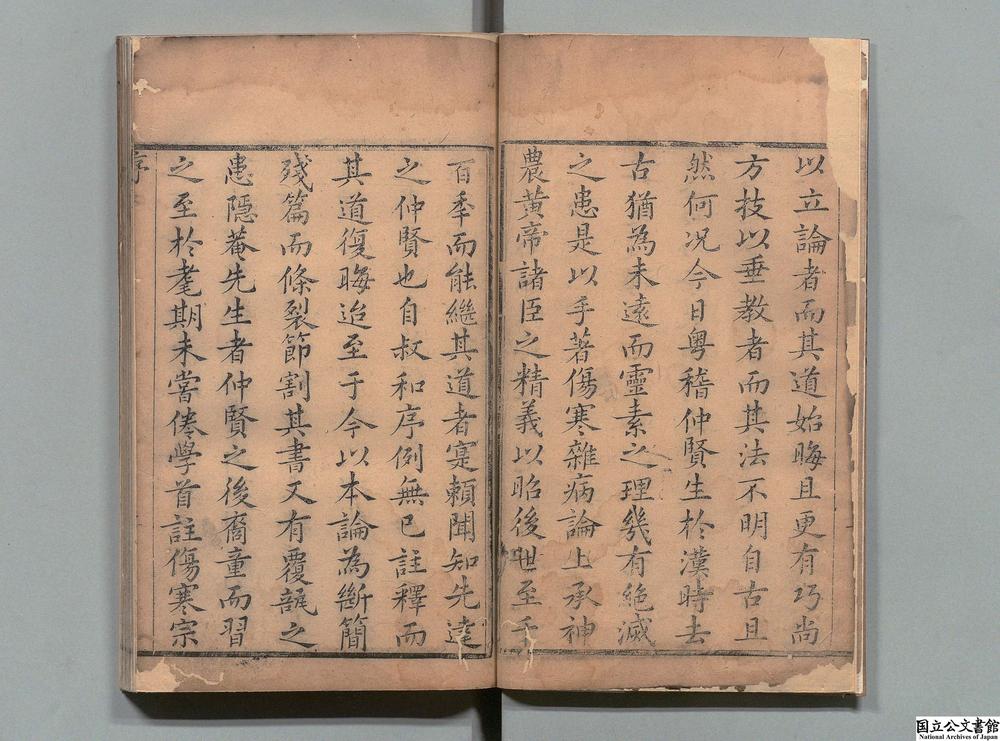 以立論者而其道始晦且更有巧尚
方技以垂教者而其法不明自古且
然何况今日粤稽仲賢生於漢時去
古猶為未遠而靈素之理幾有絶滅
之患是以手著傷寒雜病論上承神
農黄帝諸臣之精義以昭後世至千
百季而能繼其道者寔頼聞知先達
之仲賢也自叔和序例無已註釋而
其道復晦迨至于今以本論為斷簡
殘篇而條裂節割其書又有覆瓿之
患隱菴先生者仲賢之後裔童而習
之至於耄期未嘗倦學首註傷寒宗
序
国立公文書館
National Archives of Japan